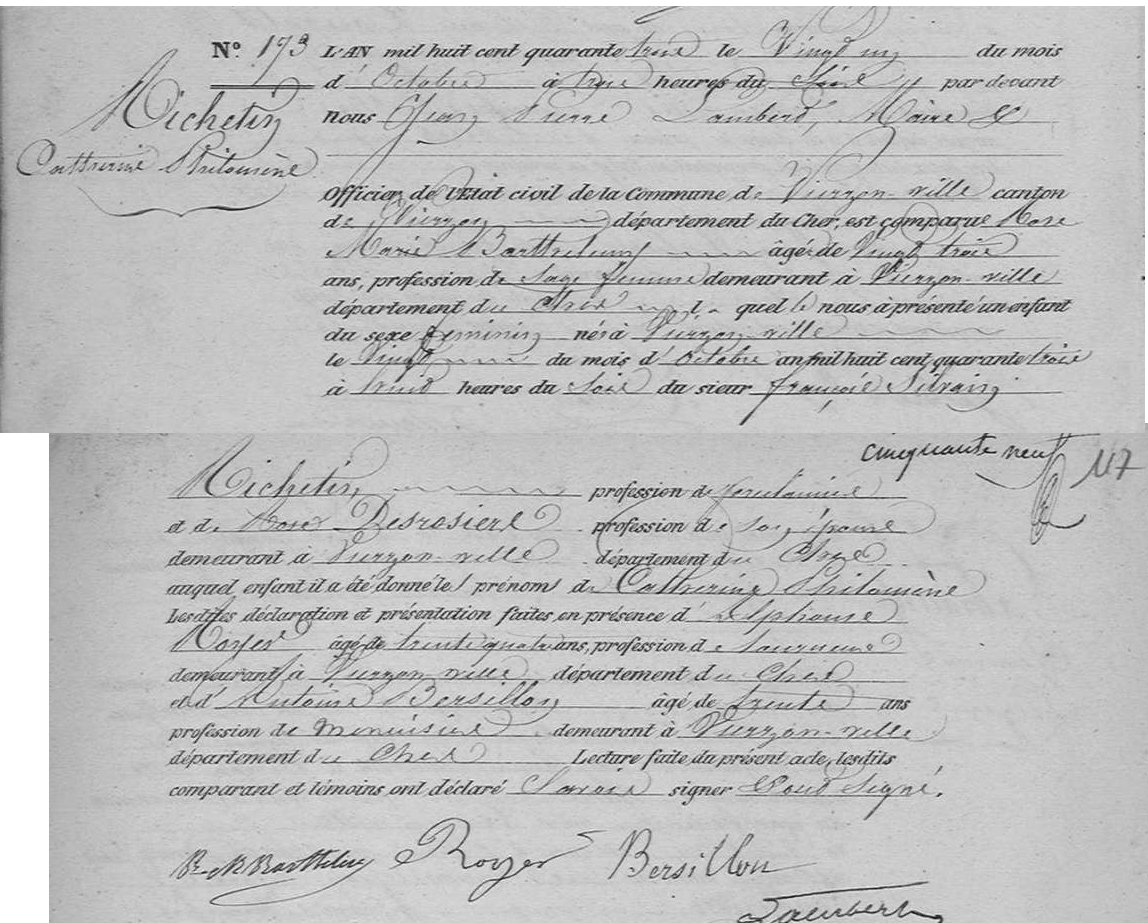 N.º 173 L'AN mil huit cent quarante trois le Vingt un du mois
d' Octobre à trois heures du Soir par devant
Michetin
nous Jean Pierre Lambert, Maire &
Catherine Philomène
Officier de l'Etat civil de la Commune de Vierzon-ville canton
de Vierzon département du Cher, est comparue Rose
Marie Barthelemy âgée de Vingt trois
ans, profession de Sage femme demeurant à Vierzon-ville
département du Cher l quel le nous à présenté un enfant
du sexe féminin né à Vierzon ville
le Vingt du mois d' Octobre an mil huit cent quarante trois
à heures du Soir du sieur françois Silvain
cinquante neuf 117
Michetin profession de
et de Rose Desrosiers profession de son épouse
demeurant à Vierzon-ville département du Cher
auquel enfant il a été donné le prénom de Catherine Philomène
Lesdites déclaration et présentation faites en présence d' Alphonse
Royer âgé de trente quatre ans, profession de tourneur
demeurant à Vierzon ville département du Cher
et d' Antoine Bersillon âgé de trente ans
profession de Menuisier demeurant à Vierzon-ville
département du Cher Lecture faite du présent acte, lesdits
comparant et témoins ont déclaré Savoir signer & ont Signé.
R. M. Barthelemy Royer Bersillon
Lambert